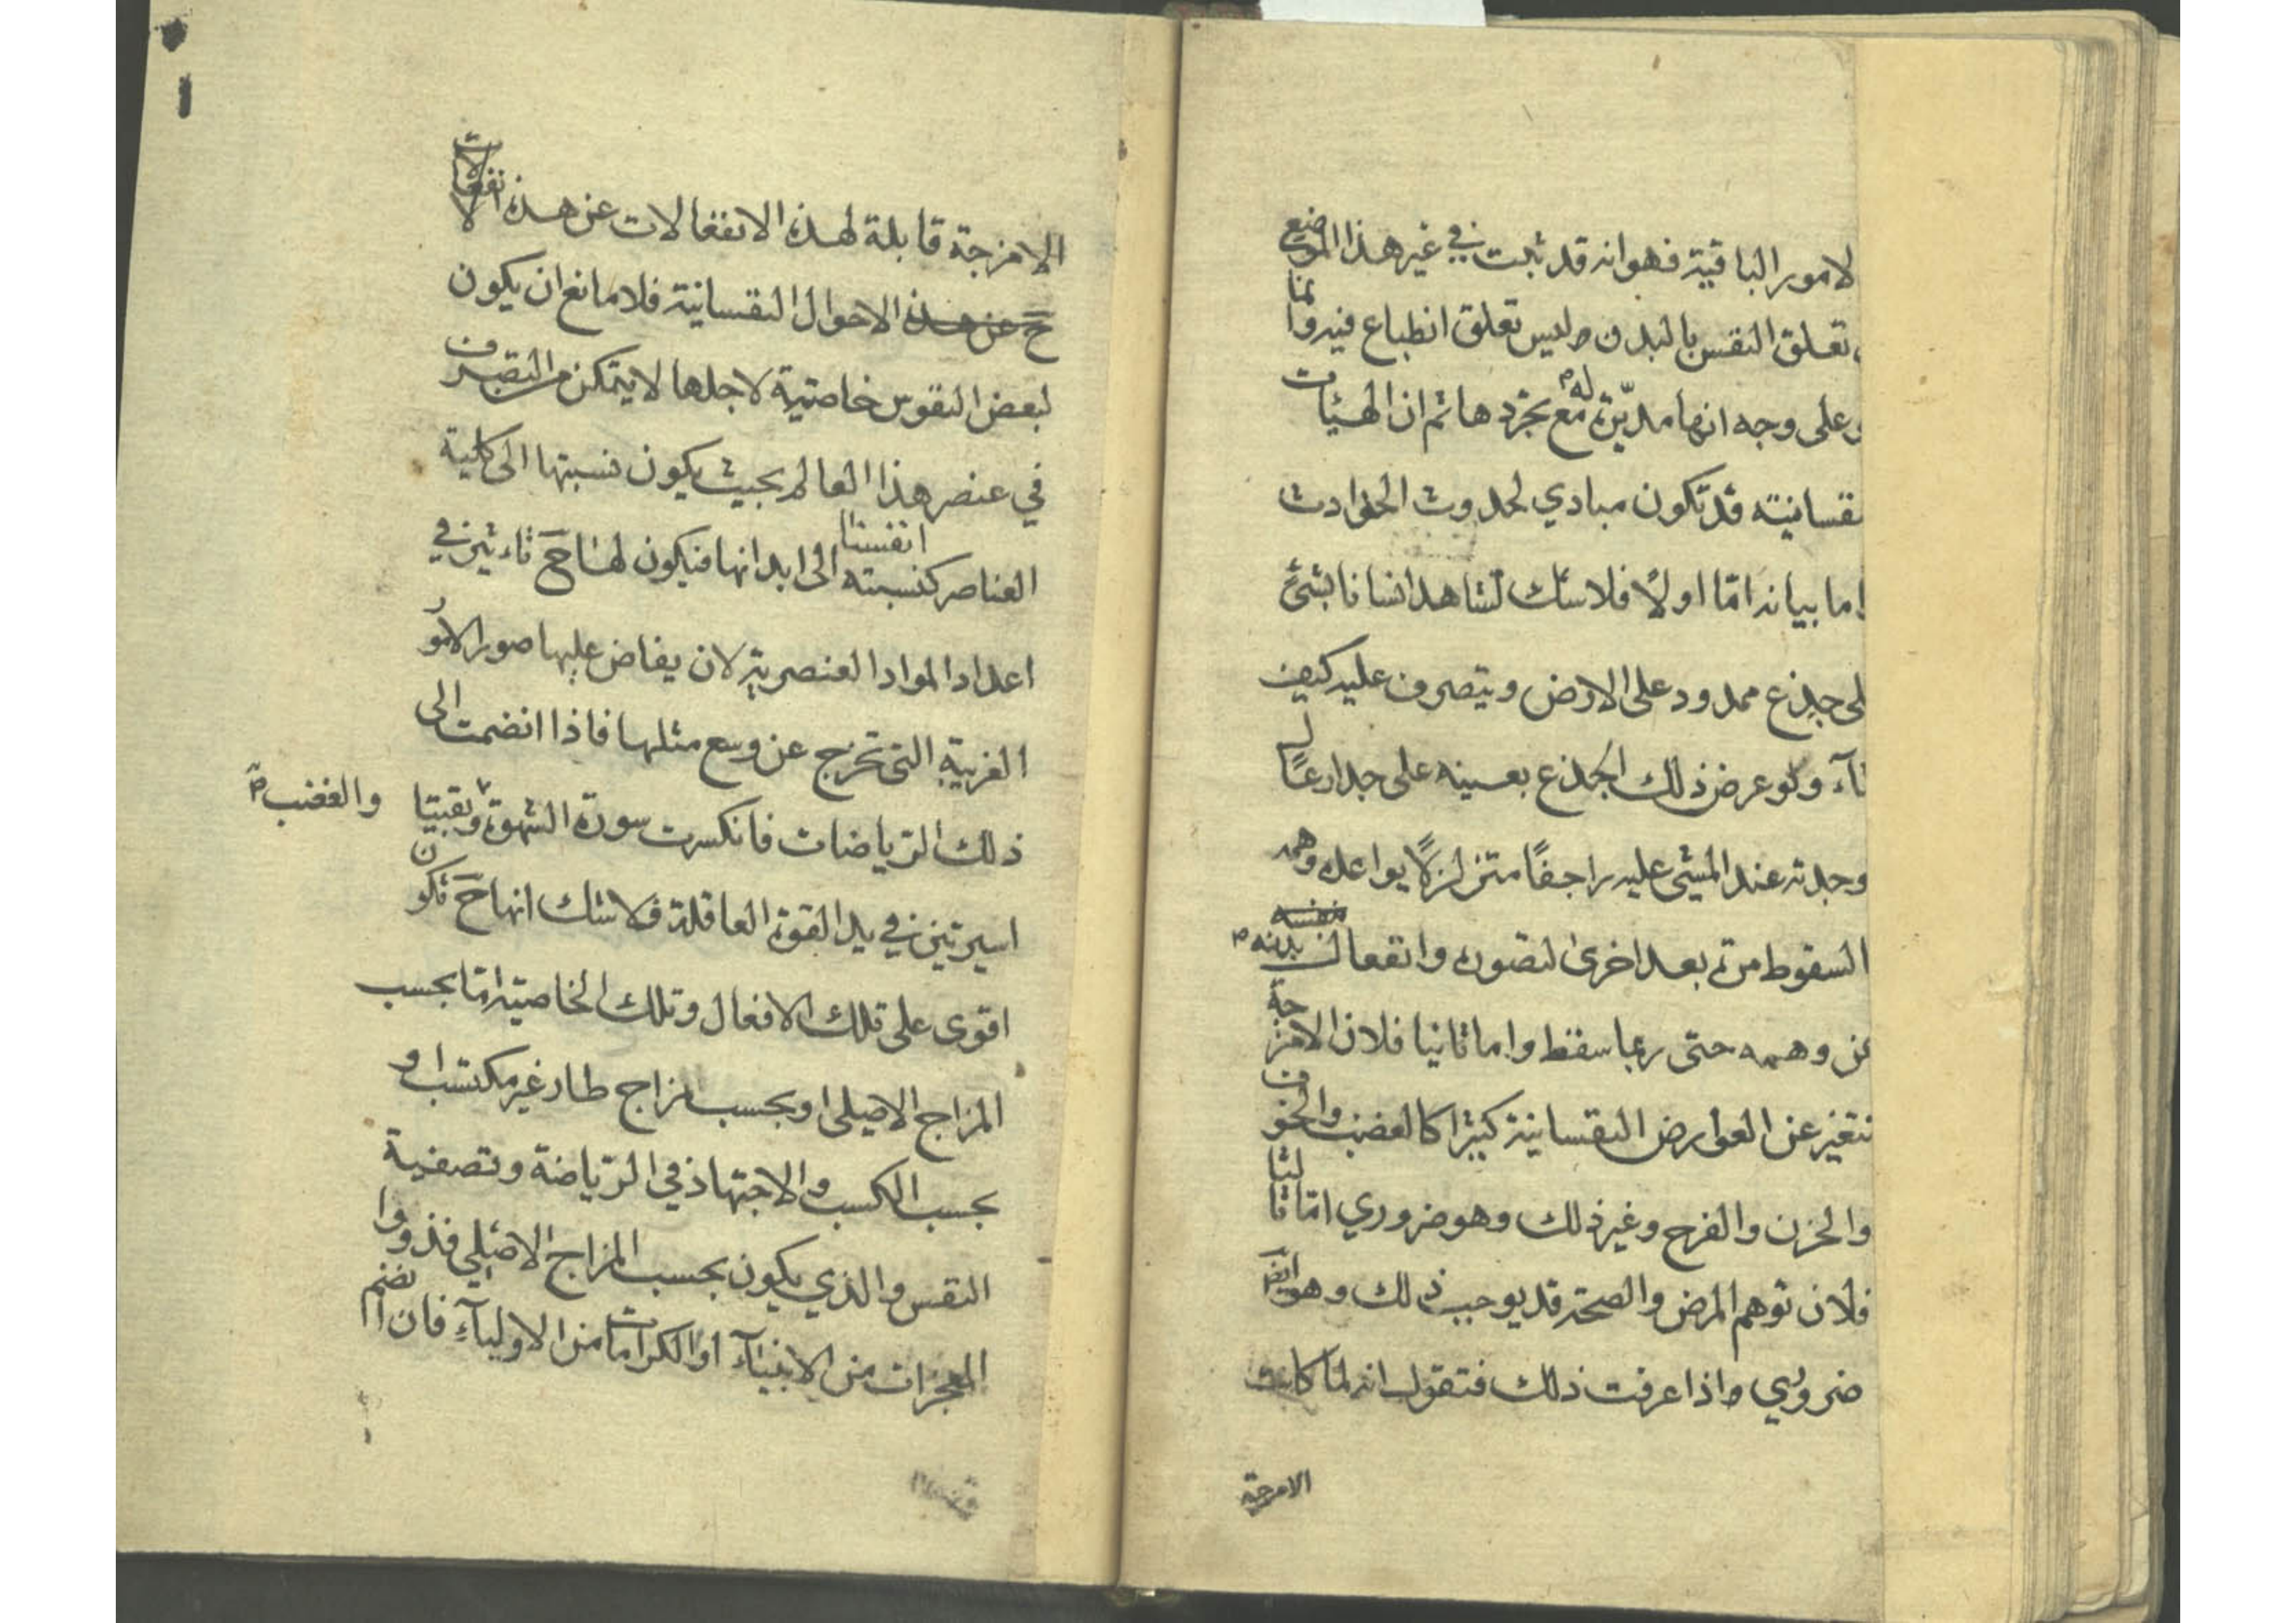 لامور الباقية فهو انه قد ثبت في غير هذا الموضع
تعلق النفس بالبدن وليس تعلق انطباع فيه وانما
وعلى وجه انها مدبرة له مع تجردها ثم ان الهيئات
نفسانية قد تكون مبادي لحدوث الحوادث
اما بيانه امّا اولًا فلانك تشاهد انسانا بشئ
لى جذع ممدود على الارض ويتصرف عليه كيف
شآء ولو عرض ذلك الجذع بعينه على جدار عال
وجدته عند المشي عليه راجفًا متزلزلًا يواعده وهمه
السقوط مرة بعد اخرى لتصوره وانفعال بدنه
عن وهمه حتى ربما سقط واما ثانيا فلان الامزجة
تتغير عن العوارض النفسانية كثيرا كالغضب والخوف
والحزن والفرح وغير ذلك وهو ضروري امّا ثالثا
فلان توهم المرض والصحة قد يوجب ذلك وهو ايضا
ضروري واذا عرفت ذلك فتقول انه لما كانت
الامزجة
الامزجة قابلة لهذه الانفعالات عن هذه
حَ عن هذه الاحوال النفسانية فلا مانع ان يكون
لبعض النفوس خاصية لاجلها لا يتمكن من التصرف
في عنصر هذا العالم بحيث يكون نسبتها الى كلية
العناصر كنسبته انفسنا الى ابدانها فيكون لها حَ تاءثير في
اعداد المواد العنصرية لان يفاض عليها صور الامور
الغريبة التي تخرج عن وسع مثلها فاذا انضمت الى
ذلك الرّياضات فانكسرت سورة الشهوة وبقيتا
والغضب
اسيرتين في يد القوة العاقلة فلا شك انها حَ تكون
اقوى على تلك الافعال وتلك الخاصية امّا بحسب
المزاج الاصلى او بحسب مزاج طار غير مكتسب او
بحسب الكسب والاجتهاد في الرّياضة وتصفية
النفس والذي يكون بحسب المزاج الاصلي فذووا
المعجزات من الانبيآء او الكرامات من الاوليآء فان انضم